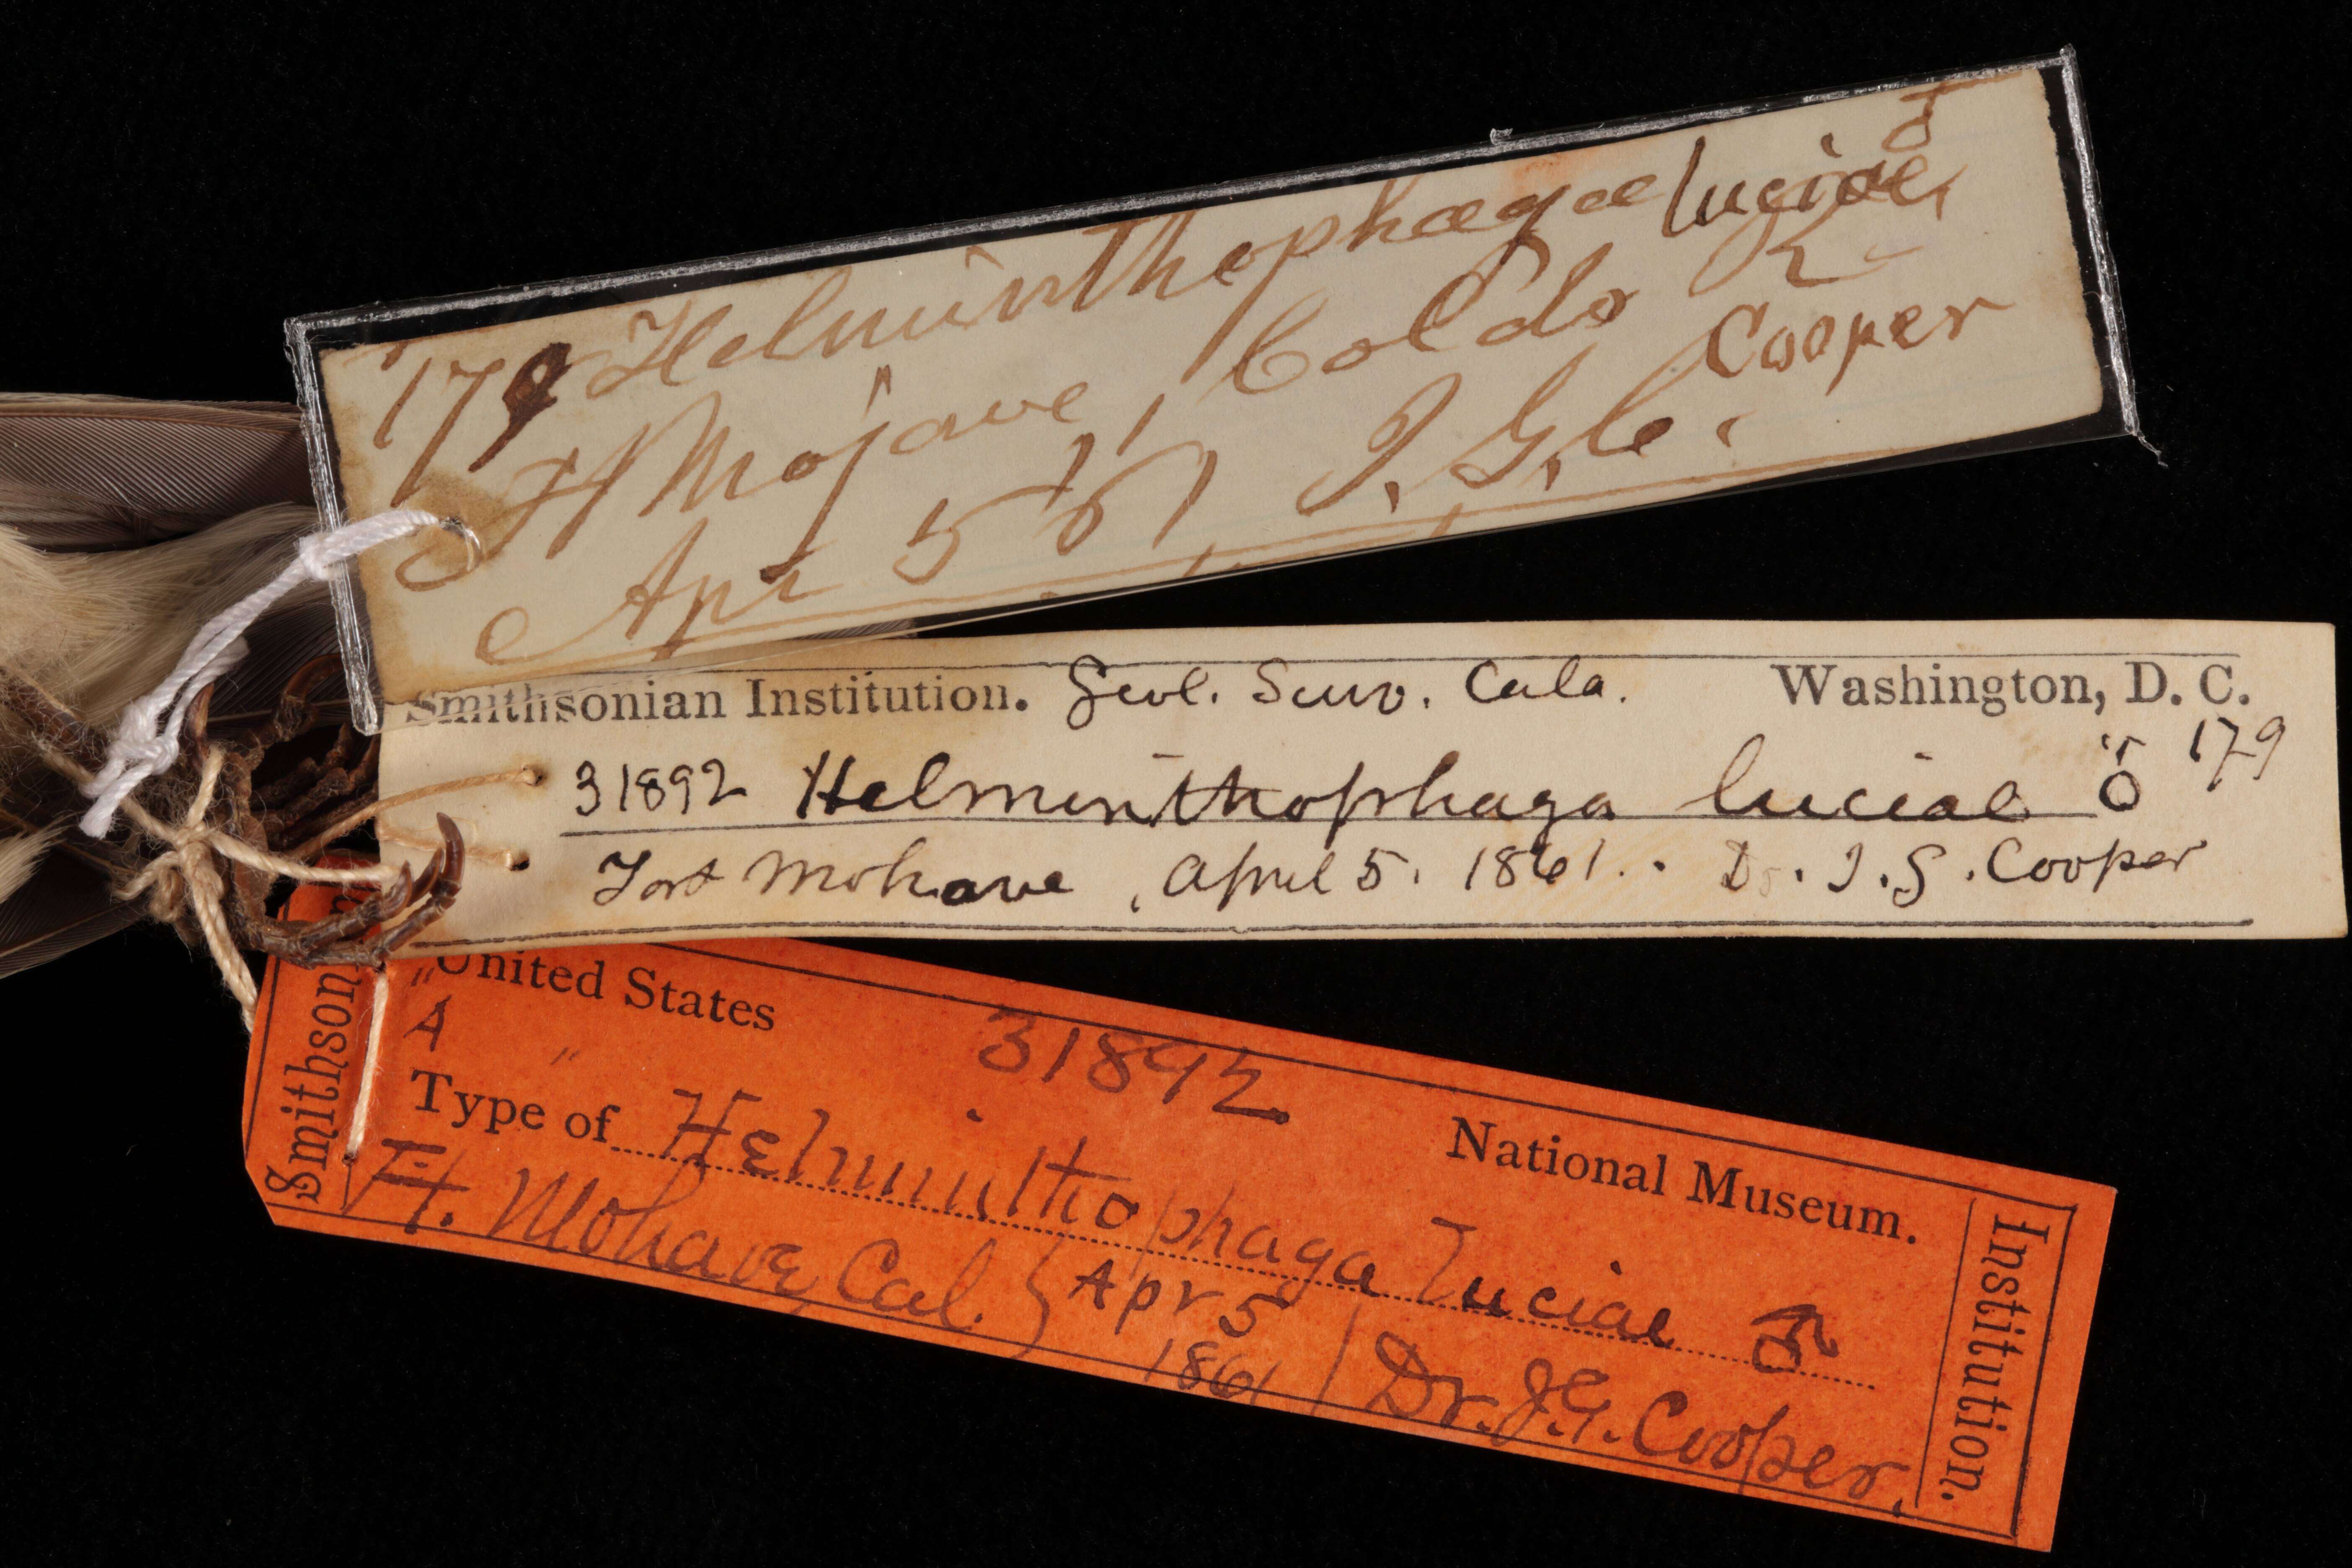 ♂
179 Helminthophaga luciae,
Ft Mojave, Coldo R
Apr 5 61 J.G.C. Cooper
Smithsonian Institution. Geol. Surv. Cala. Washington, D. C.
31892 Helminthophaga luciae ♂ 179
Fort Mohave, April 5. 1861. Dr. J. G. Cooper
United States
A 31892
Type of Helminthophaga luciae ♂
National Museum.
Ft. Mohave, Cal. Apr 5 1861 Dr. J.G. Cooper.
Smithson
Institution.